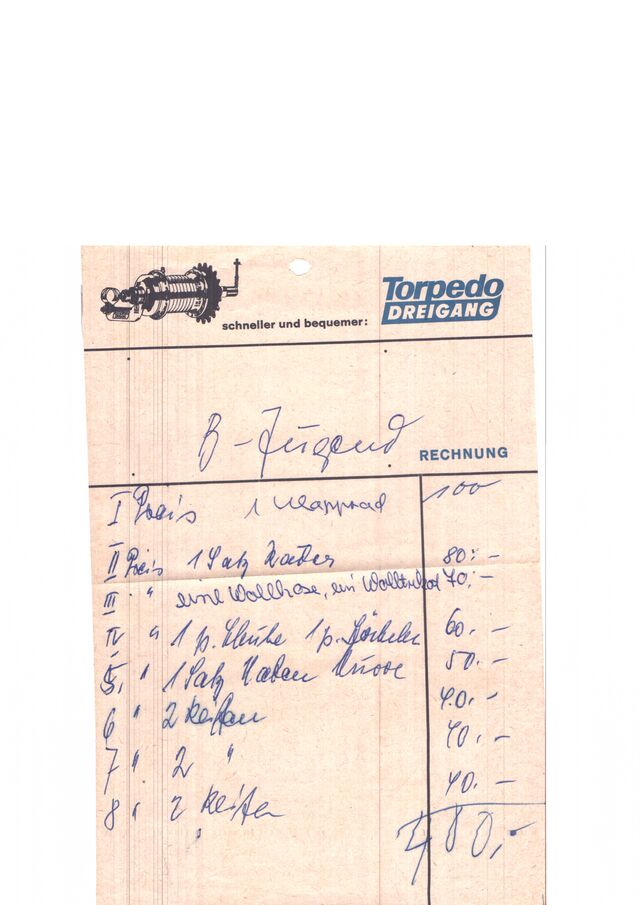 Torpedo
DREIGANG
schneller und bequemer:
B-Jugend
RECHNUNG
I Preis 1 Klapprad 100
II Preis 1 Satz 80.-
III " eine Wollhose, ein Wolltrikot 70.-
IV " 1 p. Schuhe 1 p. Söckchen 60.-
5. " 1 Satz Naben 50.-
6 " 2 Reifen 40.-
7 " 2 " 40.-
8 " 2 Reifen 40.-
480,-